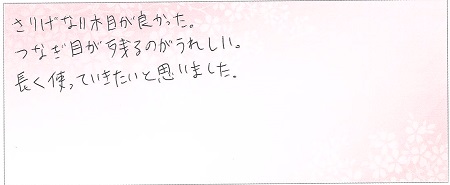 さりげない木目が良かった。
つなぎ目が残るのがうれしい。
長く使っていきたいと思いました。